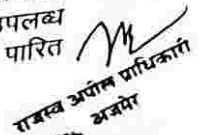 उपलब्ध
पारित
राजस्व अपील प्राधिकारी
अजमेर